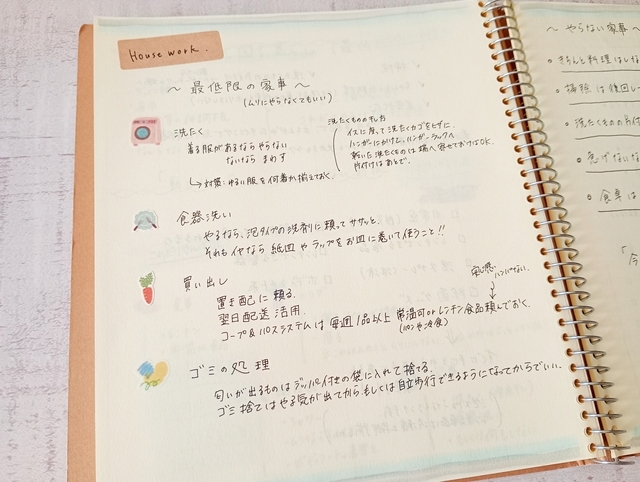 House work.
〜 最低限の家事 〜
(ムリにやらなくてもいい)
洗たく
着る服があるならやらない
ないなら まわす
↳ 対策:ゆるい服を何着か揃えておく。
洗たくもののほし方
イスに座って洗たくカゴをヒザに
ハンガーにかけて、ハンガーラックへ
乾いた洗たくものは端へ寄せておけばOK.
片付けはあとで。
食器洗い
やるなら、泡タイプの洗剤に頼ってササッと。
それもイヤなら 紙皿 や ラップをお皿に巻いて使うこと!!
買い出し
置き配に頼る.
翌日配送 活用.
コープ&パルシステムは 毎週 1品以上 常温可orレンチン食品頼んでおく.
(パンや冷食)
ゴミの処理
匂いが出るものはジッパー付きの袋に入れて捨てる.
ゴミ捨てはやる気が出てから、もしくは自立歩行できるようになってからでいい.
〜 やらない家事 〜
・きちんと料理はしな
・掃除は後回し
・洗たくものの片付
・急げないな
・食事は
「今